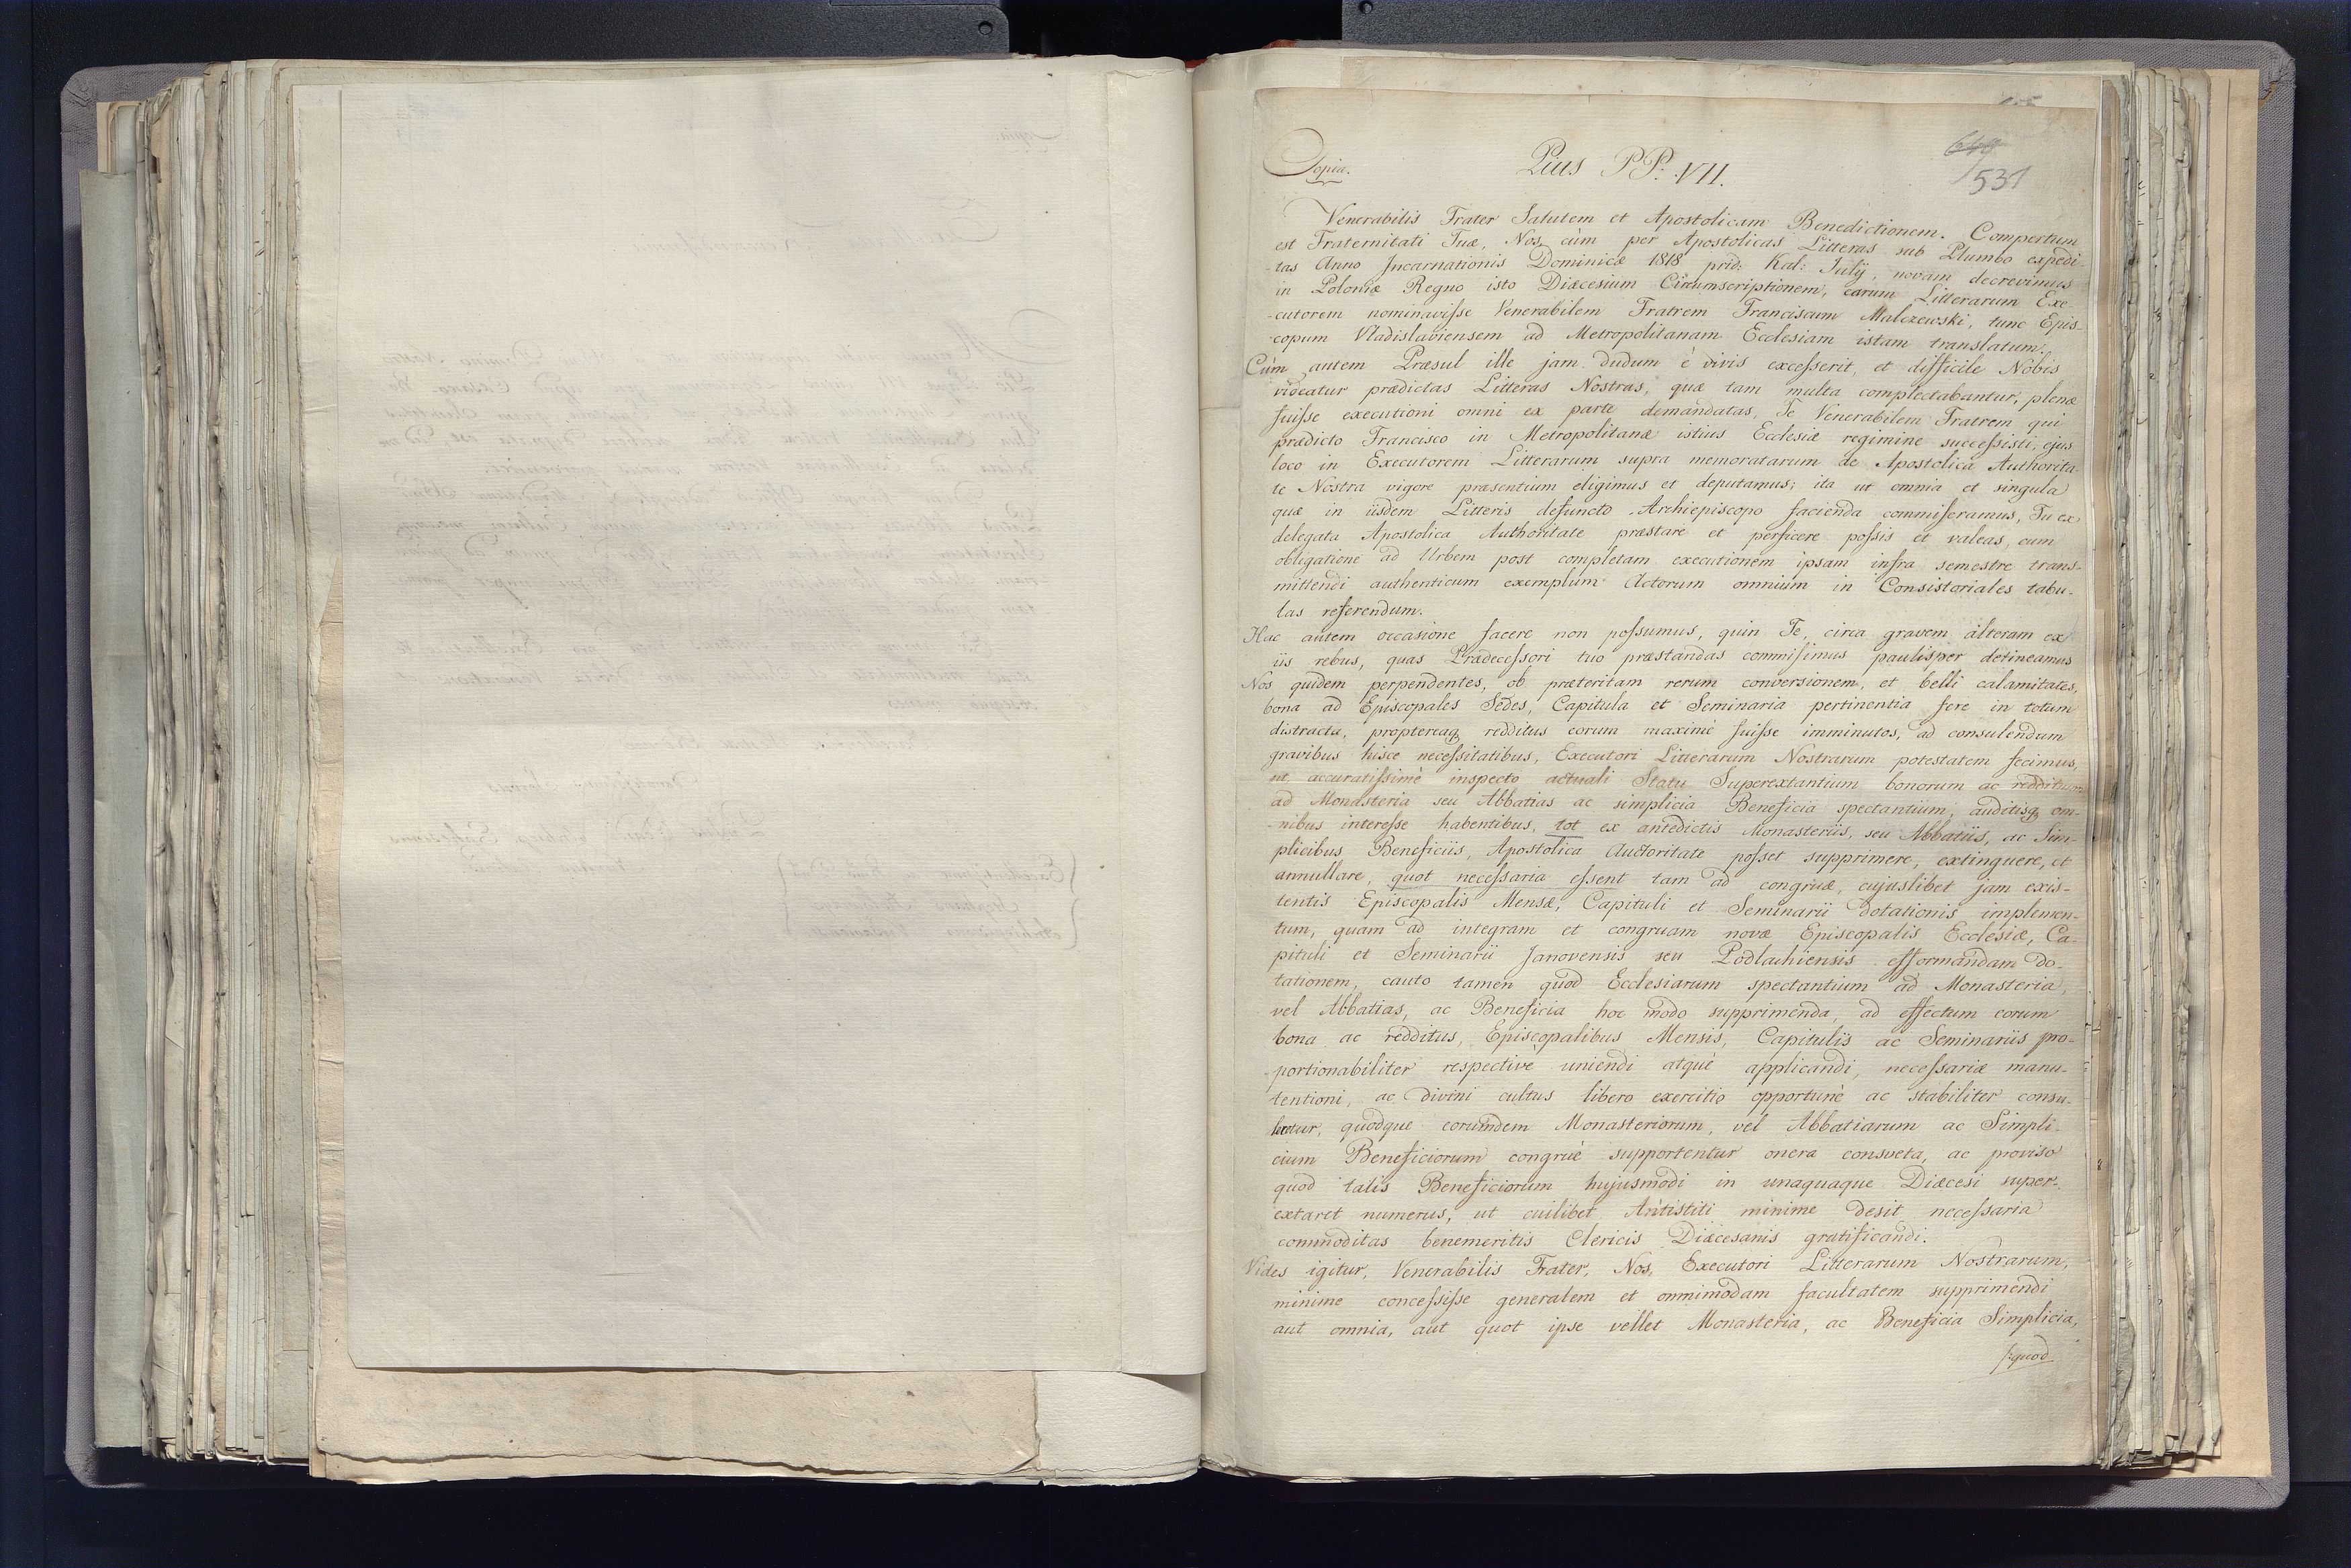 Copia.
Pius PP: VII.
649
531
Venerabilis Frater Salutem et Apostolicam Benedictionem. Compertum
est Fraternitati Tuæ, Nos, cùm per Apostolicas Litteras sub Plumbo expedi-
-tas Anno Incarnationis Dominicæ 1818 prid: Kal: Julÿ, novam decrevimus
in Poloniæ Regno isto Diæcesium Circumscriptionem, earum Litterarum Exe
-cutorem nominavisse Venerabilem Fratrem Franciscum Malczewski, tunc Epis-
-copum Vladislaviensem ad Metropolitanam Ecclesiam istam translatum.
Cùm autem Præsul ille jam dudum è vivis excesserit, et difficile Nobis
videatur prædictas Litteras Nostras, quæ tam multa complectabantur, plenæ
fuisse executioni omni ex parte demandatas, Te Venerabilem Fratrem qui
prædicto Francisco in Metropolitanæ istius Ecclesiæ regimine successisti, ejus
loco in Executorem Litterarum supra memoratarum de Apostolica Authorita-
te Nostra vigore præsentium eligimus et deputamus; ita ut omnia et singula
quæ in iisdem Litteris defuncto Archiepiscopo facienda commiseramus, Tu ex
delegata Apostolica Authoritate præstare et perficere possis et valeas, cum
obligatione ad Urbem post completam executionem ipsam infra semestre trans-
mittendi authenticum exemplum Actorum omnium in Consistoriales tabu-
las referendum.
Hac autem occasione facere non possumus, quin Te, circa gravem alteram ex
iis rebus, quas Prædecessori tuo præstandas commisimus paulisper detineamus
Nos quidem perpendentes, ob præteritam rerum conversionem, et belli calamitates,
bona ad Episcopales Sedes, Capitula et Seminaria pertinentia fere in totum
distracta, proptereaq redditus eorum maximè fuisse imminutos, ad consulendum
gravibus hisce necessitatibus, Executori Litterarum Nostrarum potestatem fecimus,
ut accuratissimè inspecto actuali Statu Superextantium bonorum ac reddituum
ad Monasteria seu Abbatias ac simplicia Beneficia spectantium, auditisq om-
-nibus interesse habentibus, tot ex antedictis Monasteriis, seu Abbatiis, ac Sim-
plicibus Beneficiis, Apostolica Auctoritate posset supprimere, extinguere, et
annullare, quot necessaria essent tam ad congruæ, cujuslibet jam exis-
tentis Episcopalis Mensæ, Capituli et Seminarii dotationis implemen-
tum, quam ad integram et congruam novæ Episcopalis Ecclesiæ, Ca-
pituli et Seminarii Janovensis seu Podlachiensis efformandam do-
tationem, cauto tamen quod Ecclesiarum spectantium ad Monasteria,
vel Abbatias, ac Beneficia hoc modo supprimenda, ad effectum eorum
bona ac redditus, Episcopalibus Mensis, Capitulis ac Seminariis pro-
-portionabiliter respectivè uniendi atquè applicandi, necessariæ manu-
tentioni, ac divini cultus libero exercitio opportunè ac stabiliter consu-
leretur, quodque eorumdem Monasteriorum, vel Abbatiarum ac Simpli-
cium Beneficiorum congruè supportentur onera consveta, ac proviso
quod talis Beneficiorum hujusmodi in unaquaque Diæcesi super-
extaret numerus, ut cuilibet Antistiti minime desit necessaria
commoditas benemeritis Clericis Diæcesanis gratificandi.
Vides igitur, Venerabilis Frater, Nos, Executori Litterarum Nostrarum,
minime concessisse generalem et omnimodam facultatem supprimendi
aut omnia, aut quot ipse vellet Monasteria, ac Beneficia Simplicia,
/:quod